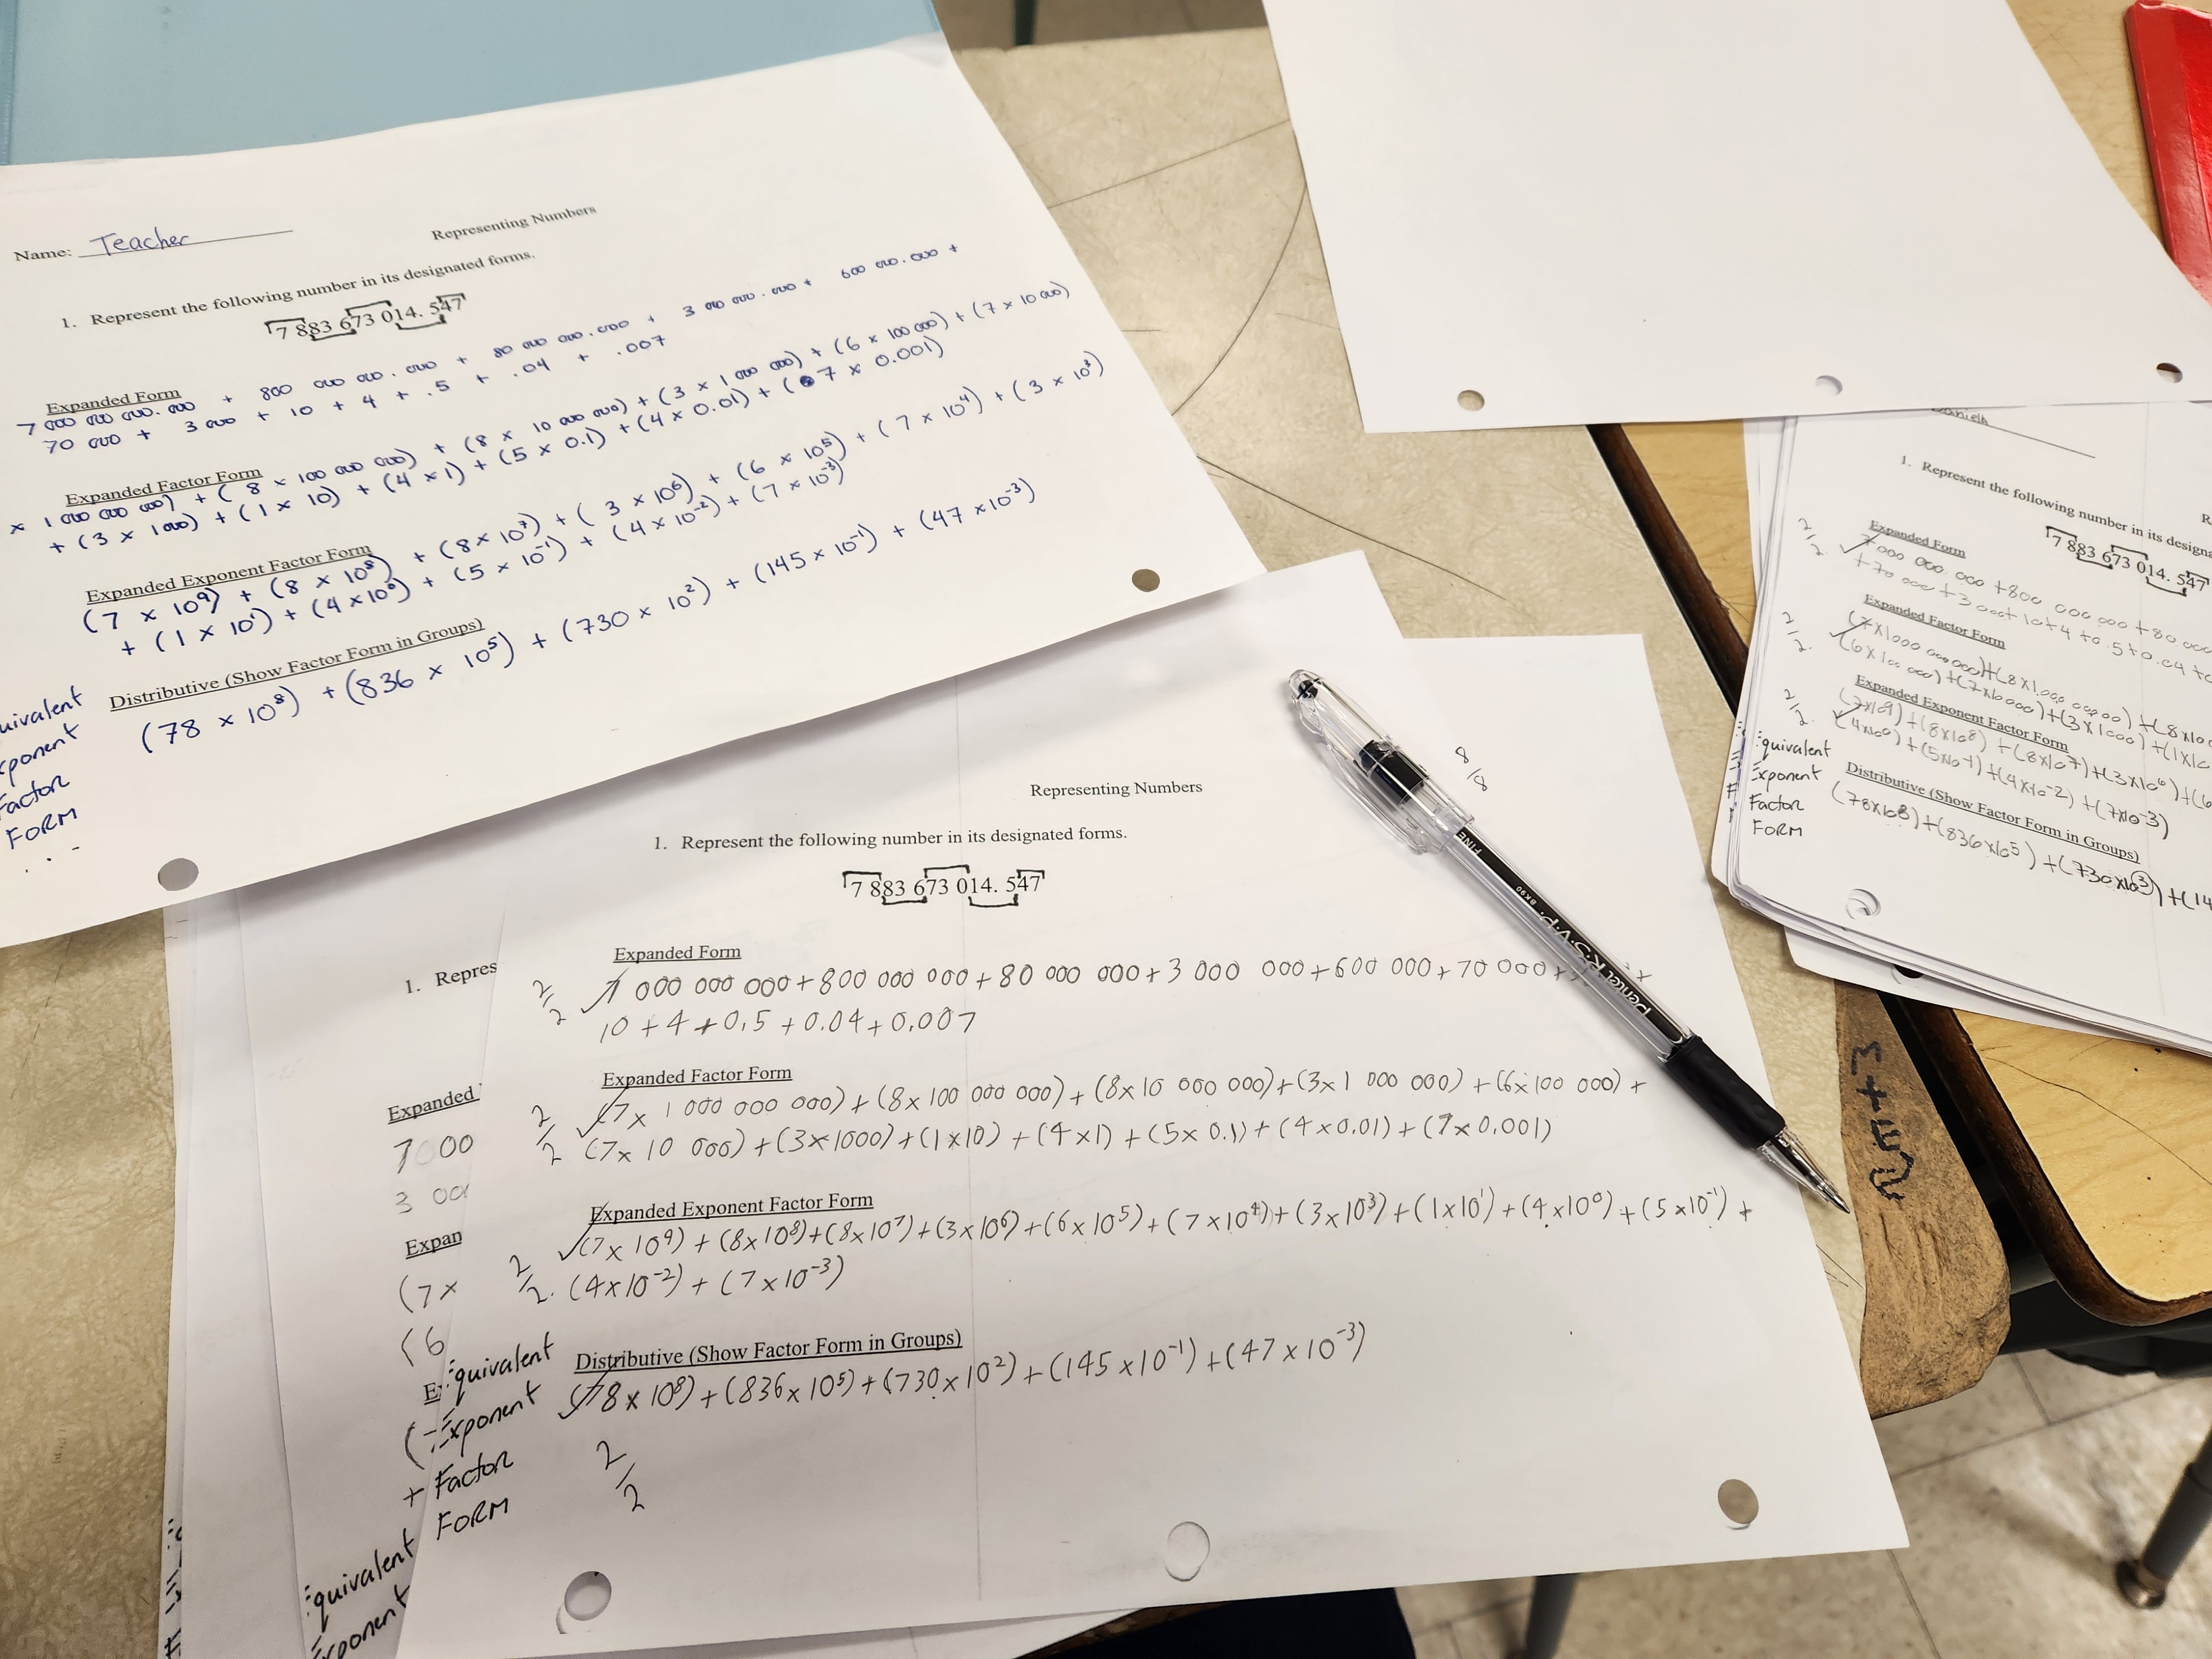 Name: Teacher
Representing Numbers
1. Represent the following number in its designated forms.
7 883 673 014. 547
Expanded Form
7 000 000 000.000 + 800 000 000.000 + 80 000 000.000 + 3 000 000.000 + 600 000.000 +
70 000 + 3 000 + 10 + 4 + .5 + .04 + .007
Expanded Factor Form
x 1 000 000 000) + (8 x 100 000 000) + (8 x 10 000 000) + (3 x 1 000 000) + (6 x 100 000) + (7 x 10 000)
+ (3 x 1 000) + (1 x 10) + (4 x 1) + (5 x 0.1) + (4 x 0.01) + (7 x 0.001)
Expanded Exponent Factor Form
(7 x 10⁹) + (8 x 10⁸) + (8 x 10⁷) + (3 x 10⁶) + (6 x 10⁵) + (7 x 10⁴) + (3 x 10³)
+ (1 x 10¹) + (4 x 10⁰) + (5 x 10⁻¹) + (4 x 10⁻²) + (7 x 10⁻³)
Distributive (Show Factor Form in Groups)
(78 x 10⁸) + (836 x 10⁵) + (730 x 10²) + (145 x 10⁻¹) + (47 x 10⁻³)
uivalent
xponent
Factor
FORM
8/8
Representing Numbers
1. Represent the following number in its designated forms.
7 883 673 014. 547
Expanded Form
2/2
7 000 000 000 + 800 000 000 + 80 000 000 + 3 000 000 + 600 000 + 70 000 +
10 + 4 + 0.5 + 0.04 + 0.007
Expanded Factor Form
2/2
(7 x 1 000 000 000) + (8 x 100 000 000) + (8 x 10 000 000) + (3 x 1 000 000) + (6 x 100 000) +
(7 x 10 000) + (3 x 1000) + (1 x 10) + (4 x 1) + (5 x 0.1) + (4 x 0.01) + (7 x 0.001)
Expanded Exponent Factor Form
2/2.
(7 x 10⁹) + (8 x 10⁸) + (8 x 10⁷) + (3 x 10⁶) + (6 x 10⁵) + (7 x 10⁴) + (3 x 10³) + (1 x 10¹) + (4 x 10⁰) + (5 x 10⁻¹) +
(4 x 10⁻²) + (7 x 10⁻³)
Distributive (Show Factor Form in Groups)
(78 x 10⁸) + (836 x 10⁵) + (730 x 10²) + (145 x 10⁻¹) + (47 x 10⁻³)
2/2
Equivalent
Exponent
Factor
FORM
Pentel R.S.V.P. BK90 FINE
1. Repres
Expanded
7 000
3 00
Expan
(7 x
(6
E
(
+
Equivalent
xponent
1. Represent the following number in its designa
7 883 673 014. 547
Expanded Form
2/2.
7 000 000 000 + 800 000 000 + 80 000
+ 70 000 + 3 000 + 10 + 4 + 0.5 + 0.04 +
Expanded Factor Form
2/2.
(7 x 1000 000 000) + (8 x 1
(6 x 100 000) + (7 x 10 000) + (3 x 1000) + (1 x 1
Expanded Exponent Factor Form
2/2.
(7x10⁹) + (8x10⁸) + (8x10⁷) + (3x10⁶) + (6
(4x10⁰) + (5x10⁻¹) + (4x10⁻²) + (7x10⁻³)
Distributive (Show Factor Form in Groups)
(78x10⁸) + (836x10⁵) + (730x10³) + (14
Equivalent
Exponent
Factor
FORM